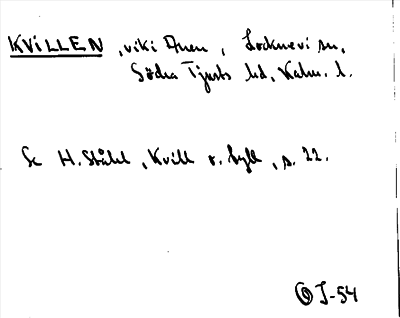 KVILLEN, vik i Åsen, Locknevi sn,
Södra Tjusts hd, Kalm. l.
Se H. Ståhl, Kvill o. Fyll, s. 22.
OJ-54